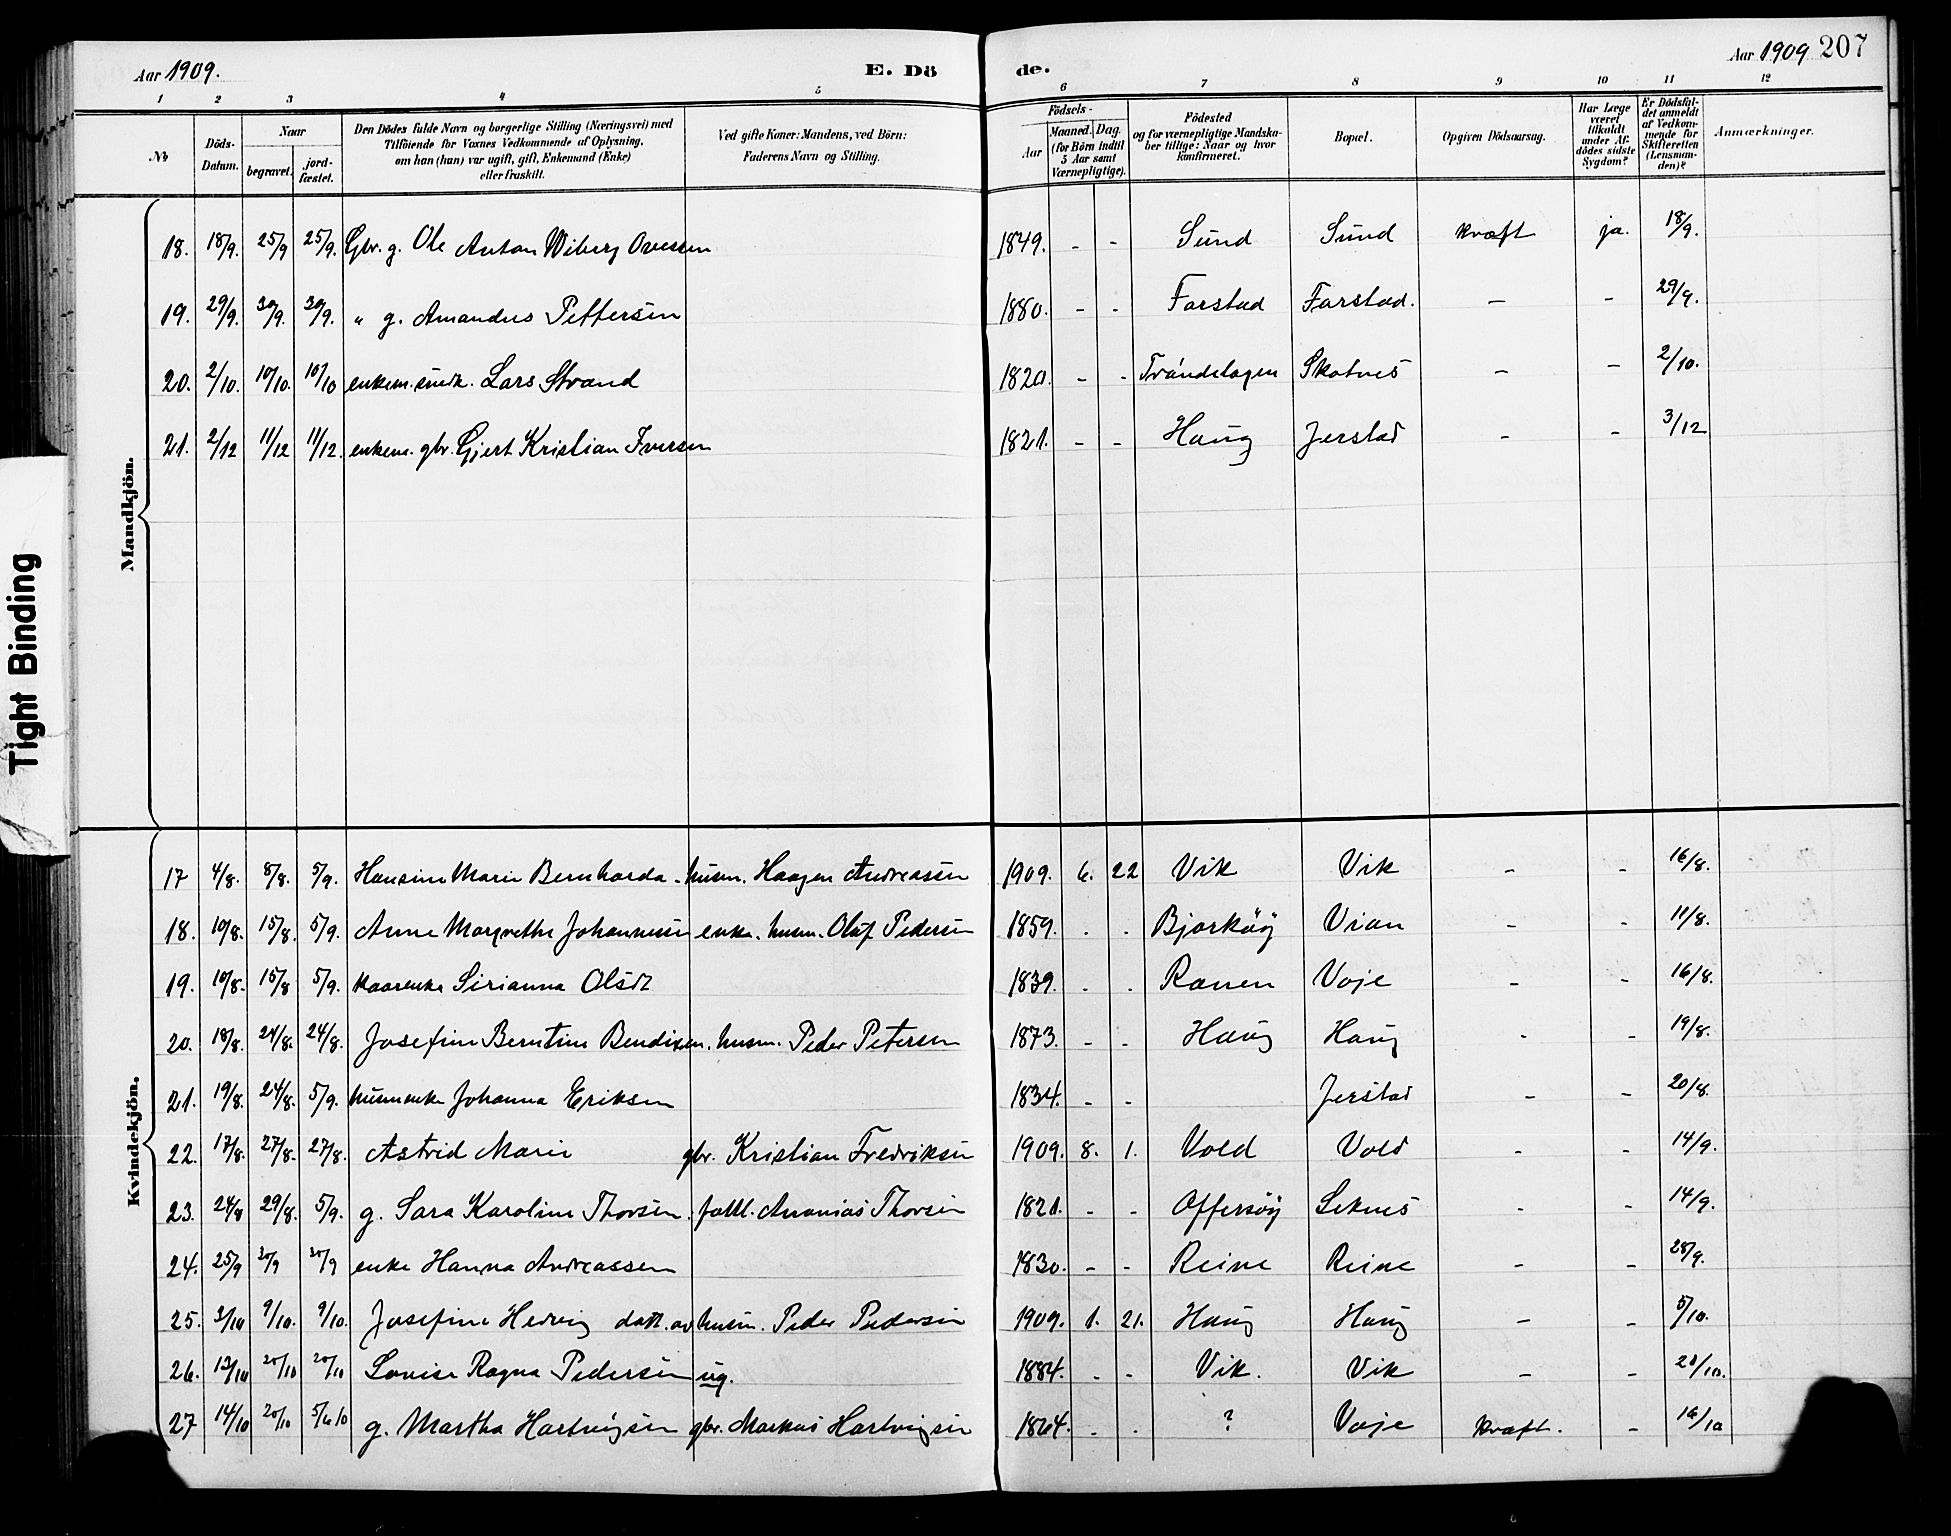 Aar 1909. E. Dö de. Aar 1909 207
1 2 3 4 5 6 7 8 9 10 11 12
No Döds-Datum. Naar begravet. jord-fæstet. Den Dödes fulde Navn og borgerlige Stilling (Næringsvei) med Tilföiende for Voxnes Vedkommende af Oplysning, om han (hun) var ugift, gift, Enkemand (Enke) eller fraskilt. Ved gifte Koner: Mandens, ved Börn: Faderens Navn og Stilling. Födsels- Aar Maaned. Dag. (for Börn indtil 5 Aar samt Værnepligtige). Födested og for værnepligtige Mandskaber tillige: Naar og hvor konfirmeret. Bopæl. Opgiven Dödsaarsag. Har Læge været tilkaldt under Afdödes sidste Sygdom? Er Dödsfaldet anmeldt af Vedkommende for Skifteretten (Lensmanden)? Anmærkninger.
Mandkjön.
18. 18/9. 25/9 25/9. Gbr. g. Ole Anton Wiberg Ovesen 1849. - - Sund Sund kræft ja. 18/9.
19. 29/9. 30/9. 30/9. " g. Amandus Pettersen 1880. - - Farstad Farstad. - - 29/9.
20. 2/10. 10/10. 10/10 enkem. Lars Strand 1820. - - Tröndelagen Skotnes - - 2/10.
21. 2/12 11/12 11/12. enkem. gbr. Gjert Kristian Iversen 1821. - - Haug Jerstad - - 3/12
Kvindekjön.
17 4/8. 8/8. 5/9. Hansine Marie Bernharda. husm. Haagen Andreassen 1909. 6. 22 Vik Vik - - 16/8.
18. 10/8. 15/8. 5/9. Anne Margrethe Johannesen enke. husm. Oluf Pedersen 1859. . . Bjarköy Vian - - 11/8.
19. 10/8. 15/8 5/9. kaarenke Sirianna Olsdt 1839. . . Ranen Voje - - 16/8.
20. 18/8. 24/8. 24/8. Josefine Berntine Bendixen. husm. Peder Petersen 1873. - - Haug Haug - - 19/8.
21. 19/8. 24/8. 5/9. husmenke Johanna Eriksen 1834. - - Jerstad - - 20/8.
22. 17/8. 27/8. 27/8. Astrid Marie gbr. Kristian Fredriksen 1909. 8. 1. Vold Vold - - 14/9.
23. 24/8 29/8. 5/9. g. Sara Karoline Thorsen. fattl. Ananias Thorsen 1821. - - Offersöy Leknes - - 14/9.
24. 25/9 30/9 30/9 enke Hanna Andreassen 1830. - - Reine Reine - - 28/9.
25. 3/10 9/10. 9/10. Josefine Hedvig datt. av husm. Peder Pedersen 1909. 1. 21. Haug Haug - - 5/10.
26. 13/10 20/10 20/10 Lovise Ragna Pedersen ug. 1884. - - Vik. Vik - - 20/10.
27 14/10 20/10 g. Martha Hartvigsen gbr. Markus Hartvigsen 1864. - . ? Voje kræft. - 16/10
Tight Binding